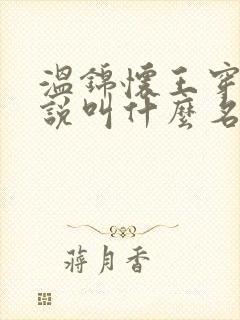 溫錦懷王穿
說叫什麼名
蔣月香